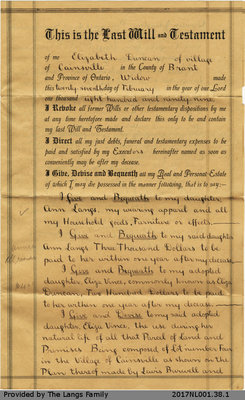 This is the Last Will and Testament
of me Elizabeth Duncan of village
of Cainsville in the County of Brant
and Province of Ontario, Widow made
this twenty seventh day of February in the year of our Lord
one thousand eight hundred and ninety nine.
I Revoke all former Wills or other testamentary dispositions by me
at any time heretofore made and declare this only to be and contain
my last Will and Testament.
I Direct all my just debts, funeral and testamentary expenses to be
paid and satisfied by my Executors hereinafter named as soon as
conveniently may be after my decease.
I Give, Devise and Bequeath all my Real and Personal Estate
of which I may die possessed in the manner following, that is to say:—
I Give and Bequeath to my daughter
Ann Langs, my wearing apparel and all
my Household goods, Furniture or effects.
I Give and Bequeath to my said daughter
Ann Langs Three Thousand Dollars to be
paid to her within one year after my decease
I Give and Bequeath to my adopted
daughter, Eliza Vince, commonly known as Eliza
Duncan, Two Hundred Dollars to be paid
to her within one year after my decease.
I Give and Devise to my said adopted
daughter, Eliza Vince, the use during her
natural life of all that Parcel of Land and
Premises Being composed of Lot number Four
in the Village of Cainsville as shown on the
Plan thereof made by Lewis Burwell and
Provided by The Langs Family
2017NL001.38.1